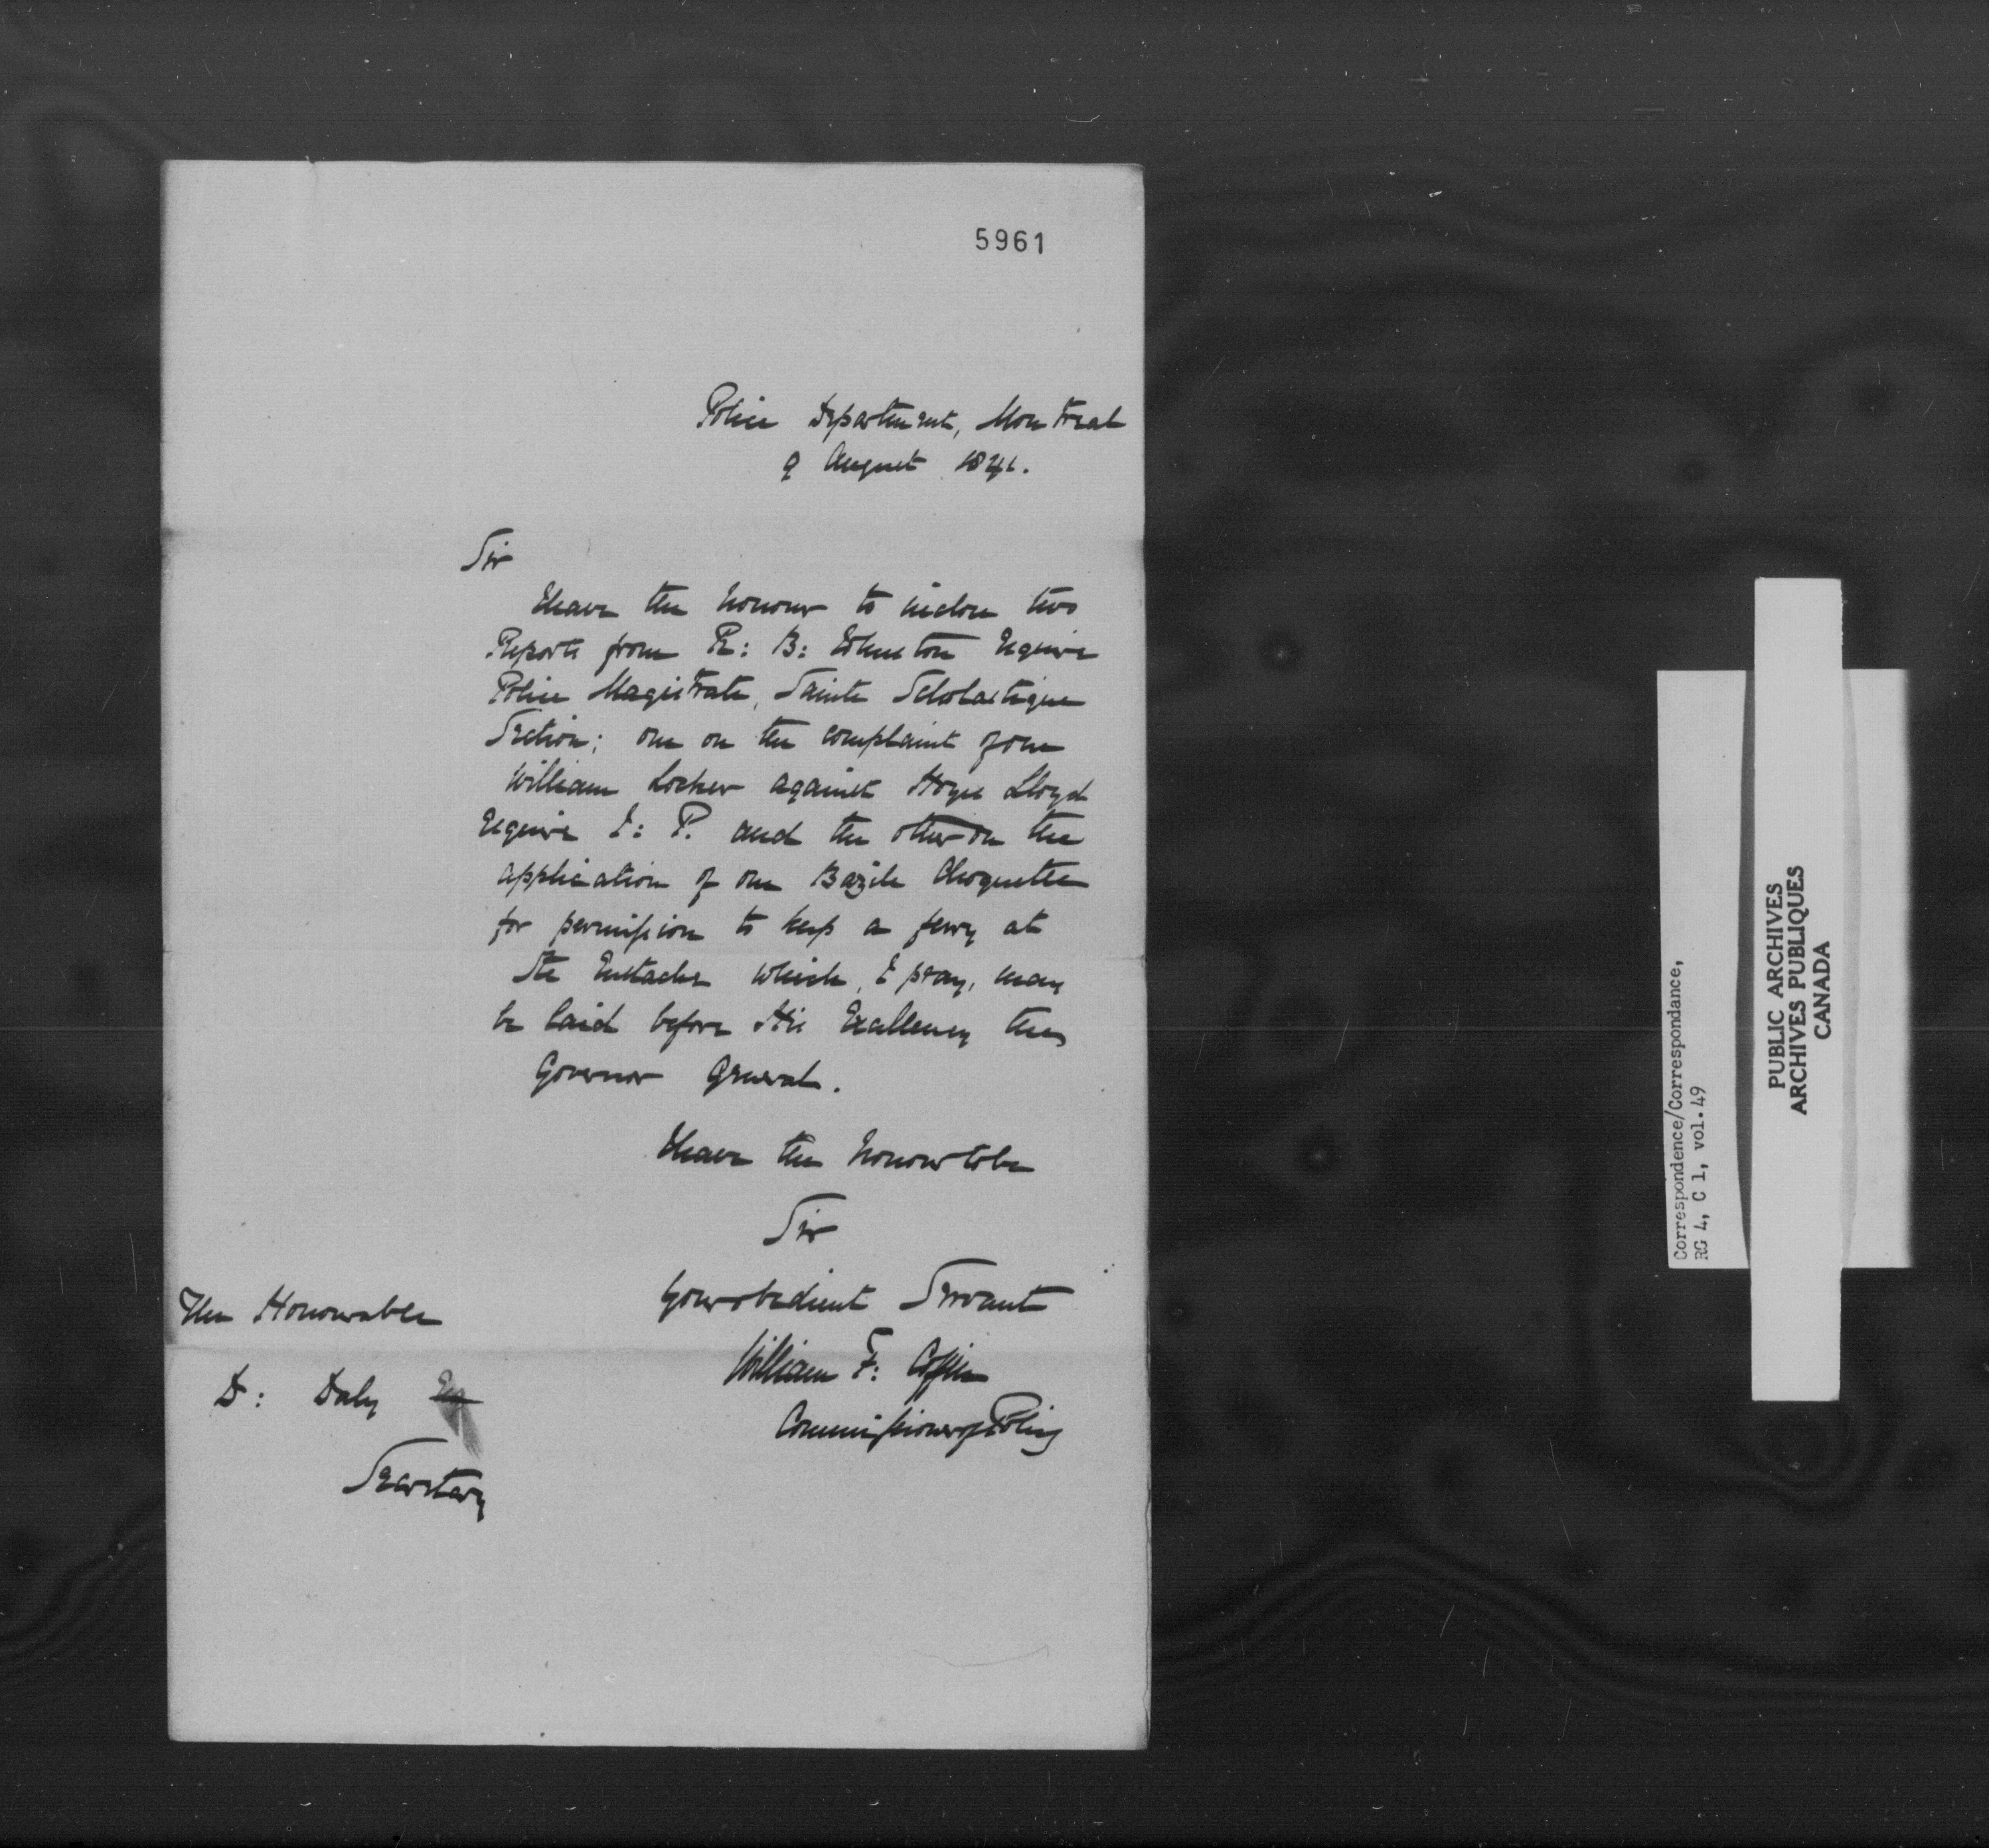 5961
Police Department, Montreal
9 August 1841.
Sir
I have the honour to inclose two
Reports from R: B: Johnston Esquire
Police Magistrate, Sainte Scholastique
Section; one on the complaint of one
William Locker against Hoyes Lloyd
Esquire J: P. and the other on the
application of one Bazile Choquette
for permission to keep a ferry at
Ste Eustache which, I pray, may
be laid before His Excellency the
Governor General.
I have the honour to be
Sir
Your obedient Servant
William F: Coffin
Commissioner of Police
The Honourable
D: Daly Esq
Secretary
Correspondence/Correspondance,
RG 4, C 1, vol.49
PUBLIC ARCHIVES
ARCHIVES PUBLIQUES
CANADA